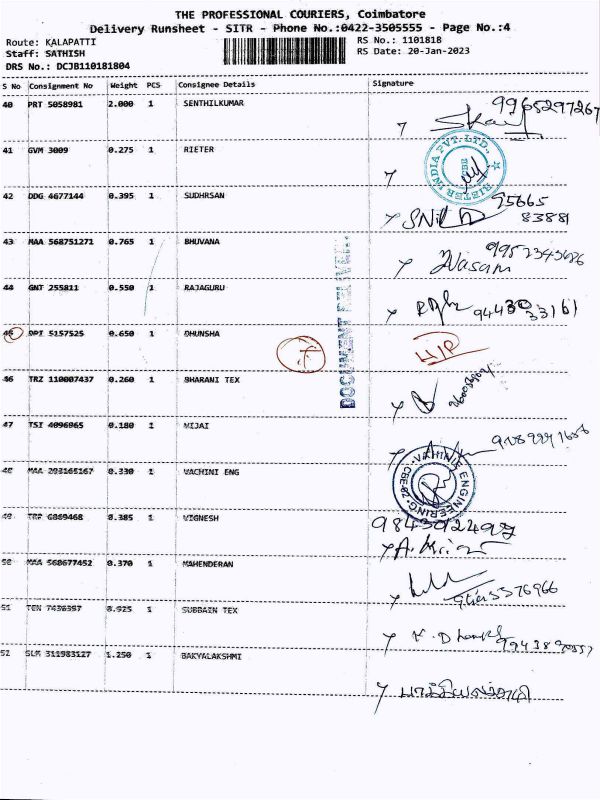 THE PROFESSIONAL COURIERS, Coimbatore
Delivery Runsheet - SITR - Phone No.:0422-3505555 - Page No.:4
Route: KALAPATTI
RS No.: 1101818
Staff: SATHISH
RS Date: 20-Jan-2023
DRS No.: DCJB110181804
S No Consignment No Weight PCS Consignee Details Signature
40 PRT 5058981 2.000 1 SENTHILKUMAR 9965297267
41 GVM 3009 0.275 1 RIETER
RIETER INDIA PVT. LTD.,
42 DDG 4677144 0.395 1 SUDHRSAN 95665
83881
43 MAA 568751271 0.765 1 BHUVANA
44 GNT 255811 0.550 1 RAJAGURU 94430
33161
DOCUMENT DELIVERY
45 5157525 0.650 1 DHUNSHA
46 TRZ 110007437 0.260 1 BHARANI TEX
47 TSI 4096965 0.180 1 VIJAI
48 MAA 203165167 0.330 1 VACHINI ENG
ENGINEERING CBE-02
49 6869468 0.385 1 VIGNESH
50 MAA 568677452 0.370 1 MAHENDERAN
51 TEN 7436397 0.925 1 SUBBAIN TEX
52 SLM 311983127 1.250 1 BAKYALAKSHMI